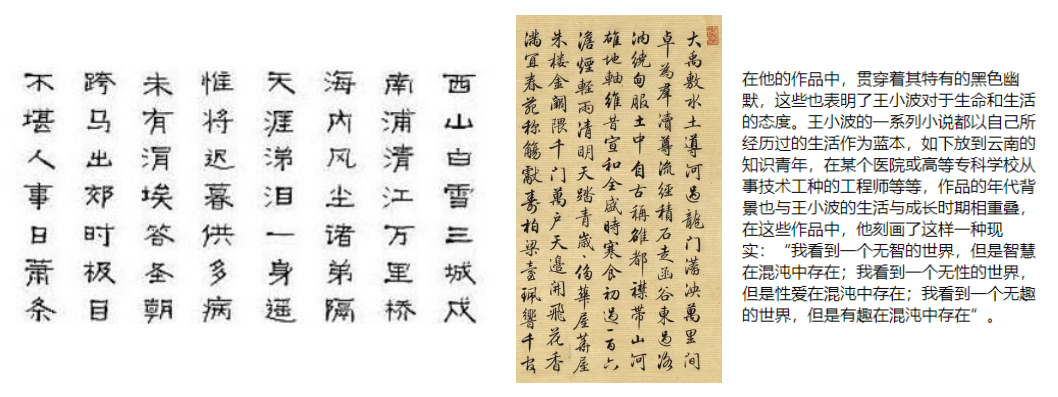 西山白雪三城戍
南浦清江万里桥
海内风尘诸弟隔
天涯涕泪一身遥
惟将迟暮供多病
未有涓埃答圣朝
跨马出郊时极目
不堪人事日萧条
大禹敷水土導河過龍门泱萬里间
卓為羣瀆尊流經積石走函谷東過洛
汭繞甸服土中自古稱雒都襟帶山河
雄地軸維昔宣和全盛時寒食初過一百六
澹煙輕雨清明天踏青歲華屋華屋
朱楼金闕隈千门萬户天邊開飛花香
滿宜春苑称觴獻壽柏梁臺珮響千官
在他的作品中，贯穿着其特有的黑色幽
默，这些也表明了王小波对于生命和生活
的态度。王小波的一系列小说都以自己所
经历过的生活作为蓝本，如下放到云南的
知识青年，在某个医院或高等专科学校从
事技术工种的工程师等等，作品的年代背
景也与王小波的生活与成长时期相重叠，
在这些作品中，他刻画了这样一种现
实：“我看到一个无智的世界，但是智慧
在混沌中存在；我看到一个无性的世界，
但是性爱在混沌中存在；我看到一个无趣
的世界，但是有趣在混沌中存在”。